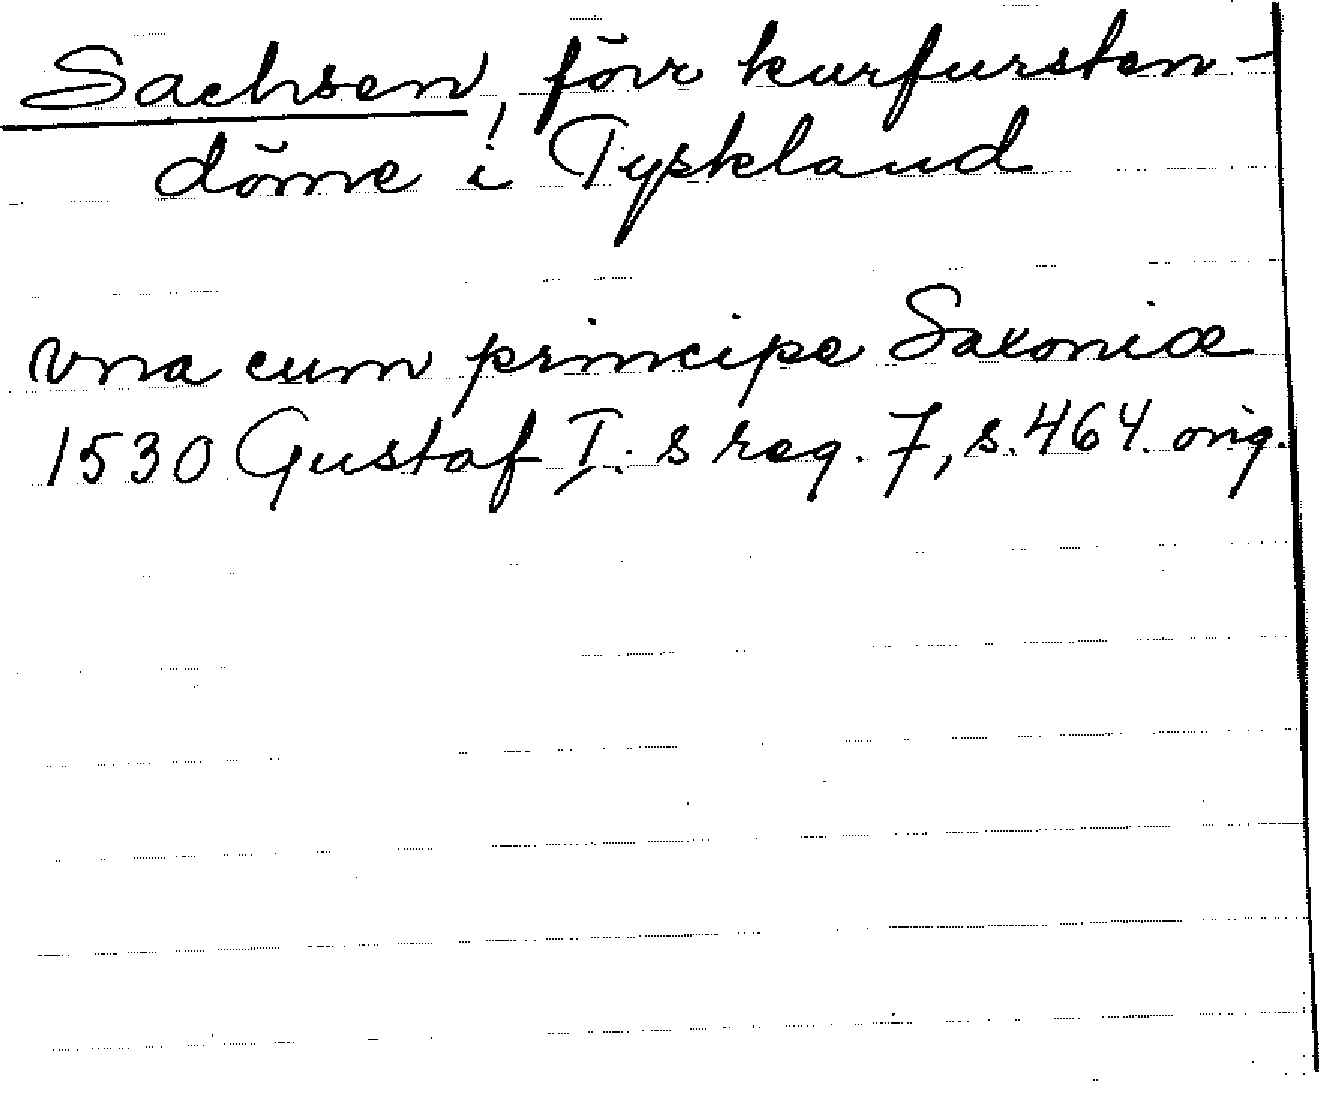 Sachsen, förr kurfursten-
döme i Tyskland
vna cum principe Saxoniæ
1530 Gustaf I:s reg. 7, s. 464. orig.